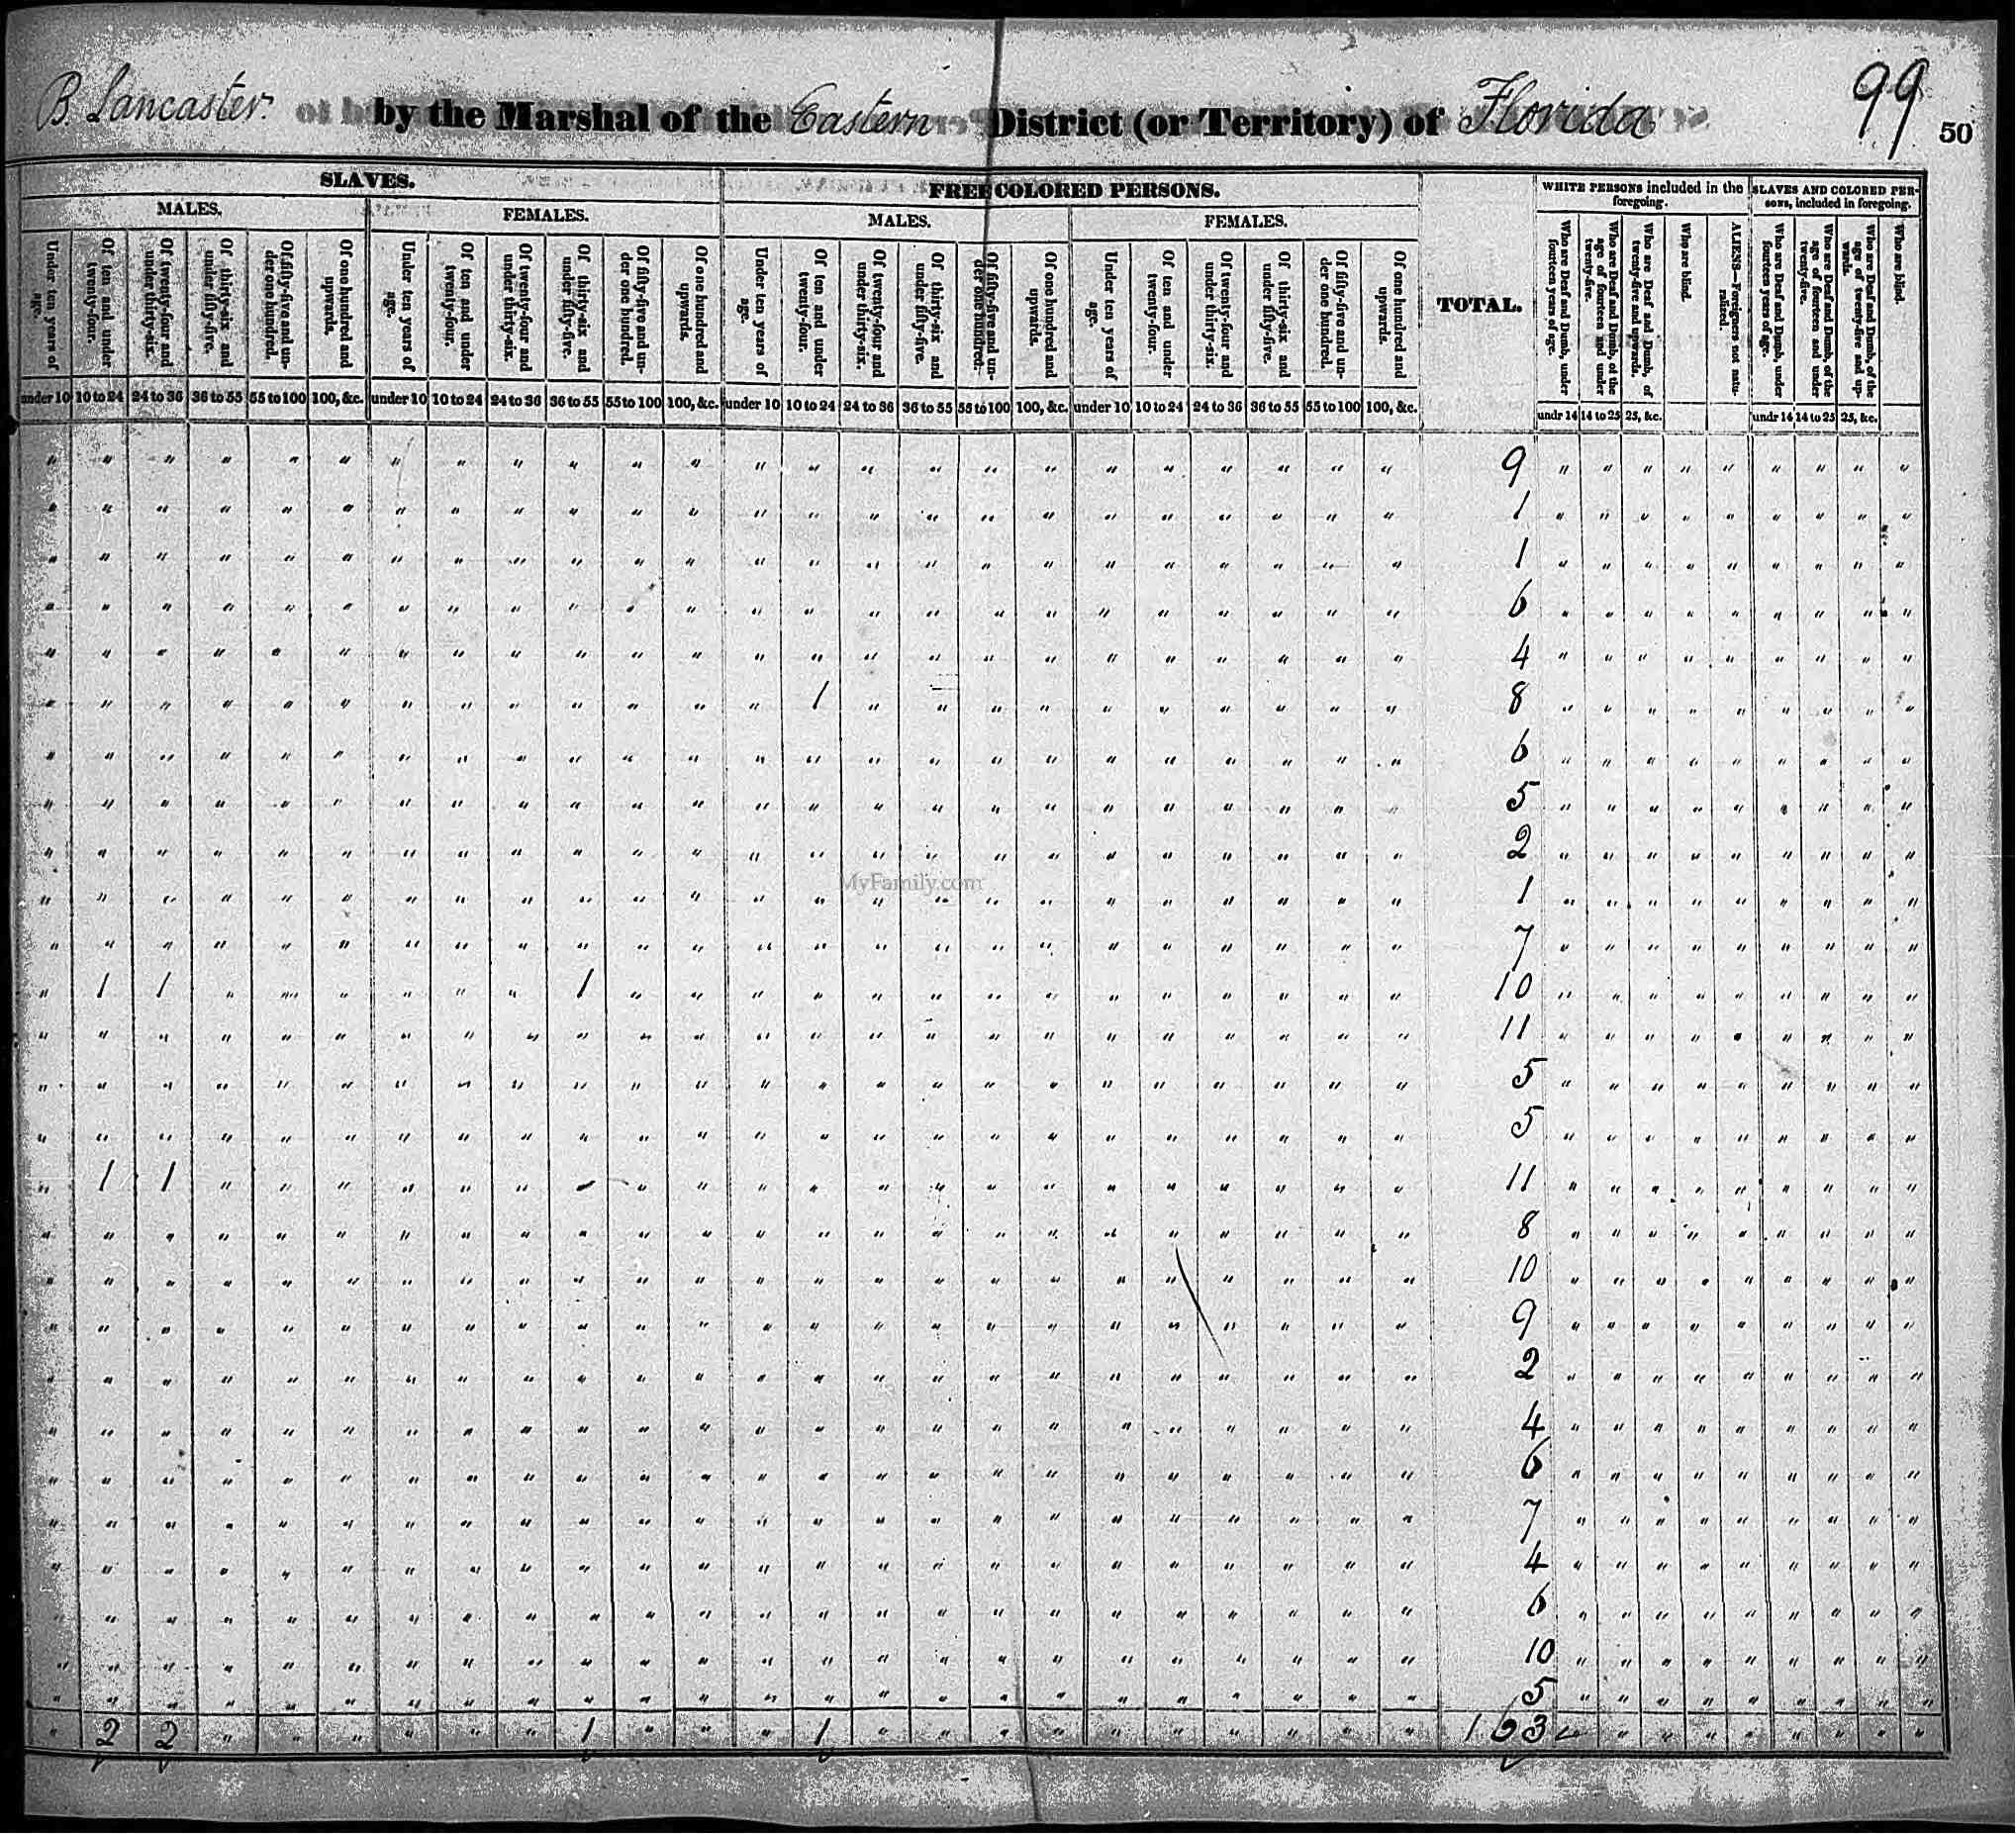 B. Lancaster. by the Marshal of the Eastern District (or Territory) of Florida 99 50
SLAVES. FREE COLORED PERSONS. TOTAL. WHITE PERSONS included in the foregoing. SLAVES AND COLORED PERSONS, included in foregoing.
MALES. FEMALES. MALES. FEMALES.
Under ten years of age. Of ten and under twenty-four. Of twenty-four and under thirty-six. Of thirty-six and under fifty-five. Of fifty-five and under one hundred. Of one hundred and upwards. Under ten years of age. Of ten and under twenty-four. Of twenty-four and under thirty-six. Of thirty-six and under fifty-five. Of fifty-five and under one hundred. Of one hundred and upwards. Under ten years of age. Of ten and under twenty-four. Of twenty-four and under thirty-six. Of thirty-six and under fifty-five. Of fifty-five and under one hundred. Of one hundred and upwards. Under ten years of age. Of ten and under twenty-four. Of twenty-four and under thirty-six. Of thirty-six and under fifty-five. Of fifty-five and under one hundred. Of one hundred and upwards. Who are Deaf and Dumb, under fourteen years of age. Who are Deaf and Dumb, of the age of fourteen and under twenty-five. Who are Deaf and Dumb, of twenty-five and upwards. Who are blind. ALIENS—Foreigners not naturalized. Who are Deaf and Dumb, under fourteen years of age. Who are Deaf and Dumb, of the age of fourteen and under twenty-five. Who are Deaf and Dumb, of the age of twenty-five and upwards. Who are blind.
under 10 10 to 24 24 to 36 36 to 55 55 to 100 100, &c. under 10 10 to 24 24 to 36 36 to 55 55 to 100 100, &c. under 10 10 to 24 24 to 36 36 to 55 55 to 100 100, &c. under 10 10 to 24 24 to 36 36 to 55 55 to 100 100, &c. undr 14 14 to 25 25, &c. undr 14 14 to 25 25, &c.
" " " " " " " " " " " " " " " " " " " " " " " " 9 " " " " " " " " "
" " " " " " " " " " " " " " " " " " " " " " " " 1 " " " " " " " " "
" " " " " " " " " " " " " " " " " " " " " " " " 1 " " " " " " " " "
" " " " " " " " " " " " " " " " " " " " " " " " 6 " " " " " " " " "
" " " " " " " " " " " " " " " " " " " " " " " " 4 " " " " " " " " "
" " " " " " " " " " " " " 1 " " " " " " " " " " 8 " " " " " " " " "
" " " " " " " " " " " " " " " " " " " " " " " " 6 " " " " " " " " "
" " " " " " " " " " " " " " " " " " " " " " " " 5 " " " " " " " " "
" " " " " " " " " " " " " " " " " " " " " " " " 2 " " " " " " " " "
" " " " " " " " " " " " " " " " " " " " " " " " 1 " " " " " " " " "
" " " " " " " " " " " " " " " " " " " " " " " " 7 " " " " " " " " "
" 1 1 " " " " " " 1 " " " " " " " " " " " " " " 10 " " " " " " " " "
" " " " " " " " " " " " " " " " " " " " " " " " 11 " " " " " " " " "
" " " " " " " " " " " " " " " " " " " " " " " " 5 " " " " " " " " "
" " " " " " " " " " " " " " " " " " " " " " " " 5 " " " " " " " " "
" 1 1 " " " " " " " " " " " " " " " " " " " " " 11 " " " " " " " " "
" " " " " " " " " " " " " " " " " " " " " " " " 8 " " " " " " " " "
" " " " " " " " " " " " " " " " " " " " " " " " 10 " " " " " " " " "
" " " " " " " " " " " " " " " " " " " " " " " " 9 " " " " " " " " "
" " " " " " " " " " " " " " " " " " " " " " " " 2 " " " " " " " " "
" " " " " " " " " " " " " " " " " " " " " " " " 4 " " " " " " " " "
" " " " " " " " " " " " " " " " " " " " " " " " 6 " " " " " " " " "
" " " " " " " " " " " " " " " " " " " " " " " " 7 " " " " " " " " "
" " " " " " " " " " " " " " " " " " " " " " " " 4 " " " " " " " " "
" " " " " " " " " " " " " " " " " " " " " " " " 6 " " " " " " " " "
" " " " " " " " " " " " " " " " " " " " " " " " 10 " " " " " " " " "
" " " " " " " " " " " " " " " " " " " " " " " " 5 " " " " " " " " "
" 2 2 " " " " " " 1 " " " 1 " " " " " " " " " " 163 " " " " " " " " "
MyFamily.com